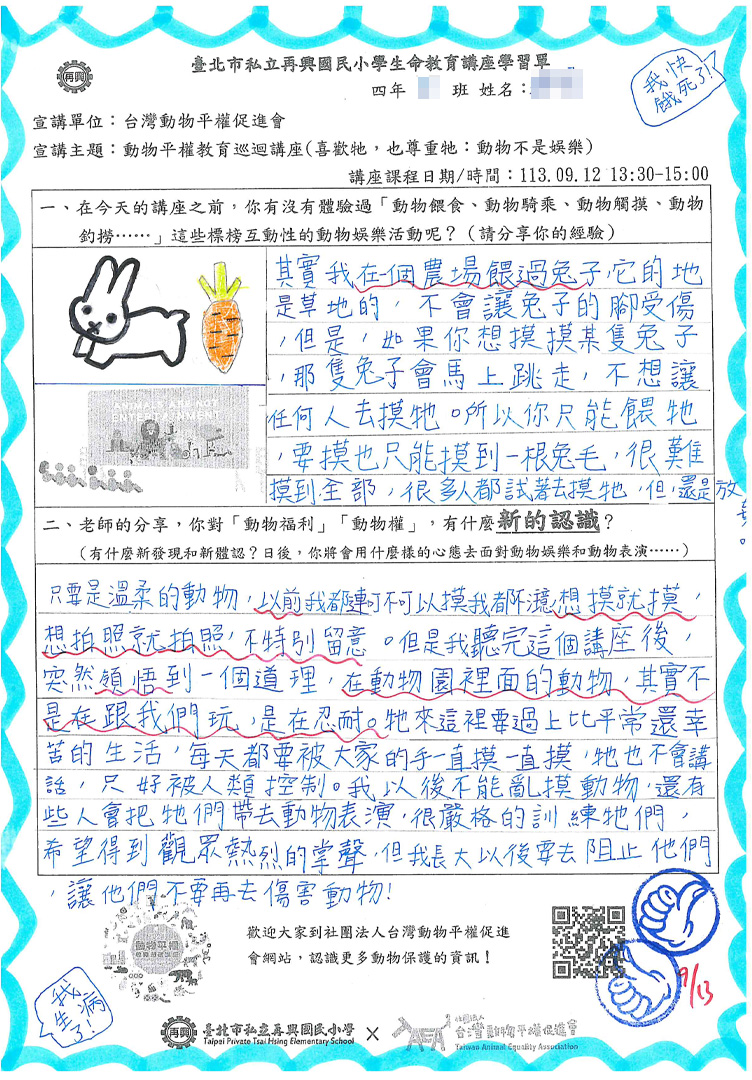 臺北市私立再興國民小學生命教育講座學習單
再興
四年 班 姓名：
我快餓死了!!
宣講單位：台灣動物平權促進會
宣講主題：動物平權教育巡迴講座(喜歡牠，也尊重牠：動物不是娛樂)
講座課程日期/時間：113.09.12 13:30-15:00
一、在今天的講座之前，你有沒有體驗過「動物餵食、動物騎乘、動物觸摸、動物
釣撈……」這些標榜互動性的動物娛樂活動呢？(請分享你的經驗)
其實我在一個農場餵過兔子,它的地
是草地的，不會讓兔子的腳受傷
，但是，如果你想摸摸某隻兔子
，那隻兔子會馬上跳走，不想讓
任何人去摸牠。所以你只能餵牠
，要摸也只能摸到一根兔毛，很難
摸到全部，很多人都試著去摸牠，但,還是放
棄。
二、老師的分享，你對「動物福利」「動物權」，有什麼新的認識？
(有什麼新發現和新體認？日後，你將會用什麼樣的心態去面對動物娛樂和動物表演……)
只要是溫柔的動物，以前我都連可不可以摸我都不濾想摸就摸，
想拍照就拍照，不特別留意。但是我聽完這個講座後，
突然領悟到一個道理，在動物園裡面的動物，其實不
是在跟我們玩，是在忍耐。牠來這裡要過上比平常還辛
苦的生活，每天都要被大家的手一直摸一直摸，牠也不會講
話，只好被人類控制。我以後不能亂摸動物，還有
些人會把牠們帶去動物表演，很嚴格的訓練牠們，
希望得到觀眾熱烈的掌聲，但我長大以後要去阻止他們
，讓他們不要再去傷害動物!
動物平權
歡迎大家到社團法人台灣動物平權促進
會網站，認識更多動物保護的資訊！
9/13
我生病了!
再興
臺北市私立再興國民小學
Taipei Private Tsai Hsing Elementary School
×
TAEA
社團法人
台灣動物平權促進會
Taiwan Animal Equality Association